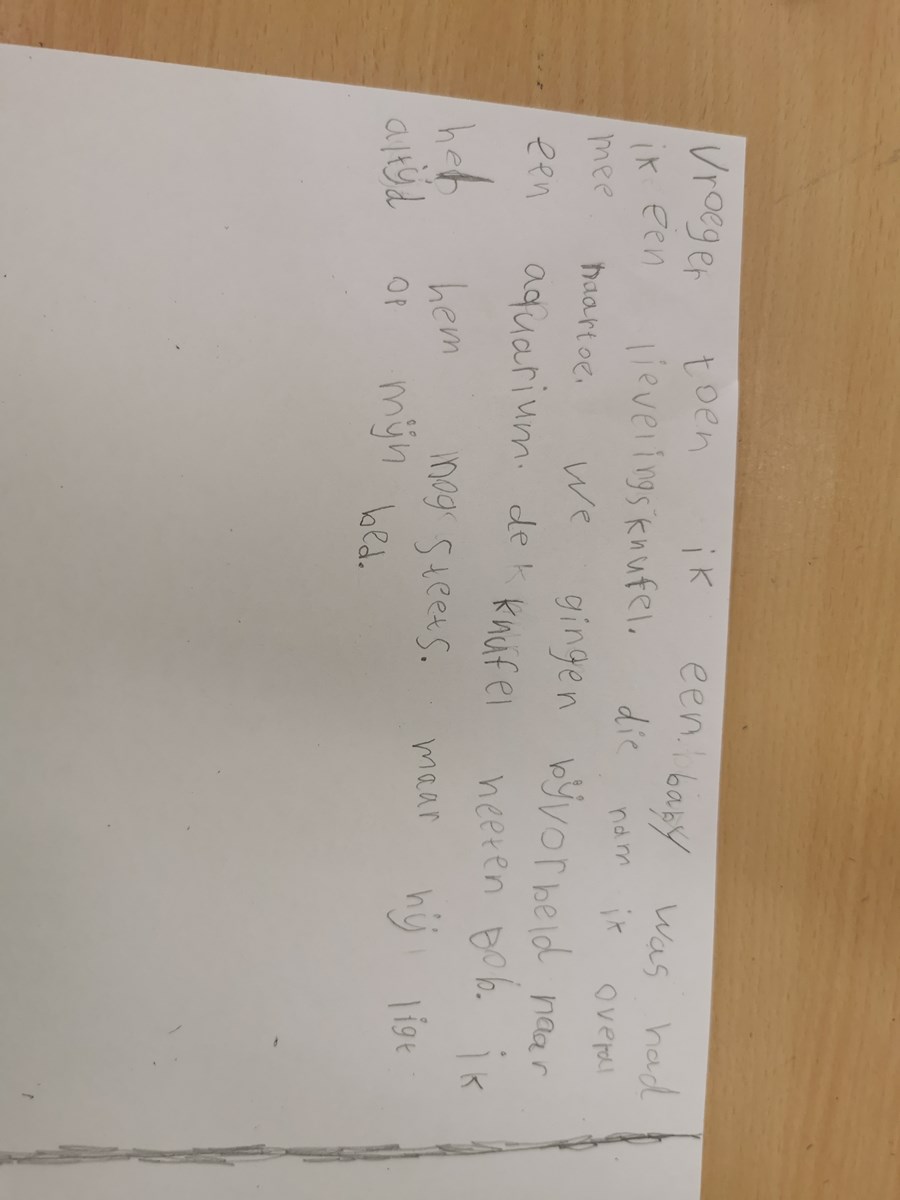 Vroeger toen ik een baby was had
ik een lievelingsknufel. die nam ik overal
mee naartoe. We gingen bijvorbeld naar
een aquarium. de knufel heeten Bob. ik
heb hem nog steets. maar hij ligt
altijd op mijn bed.